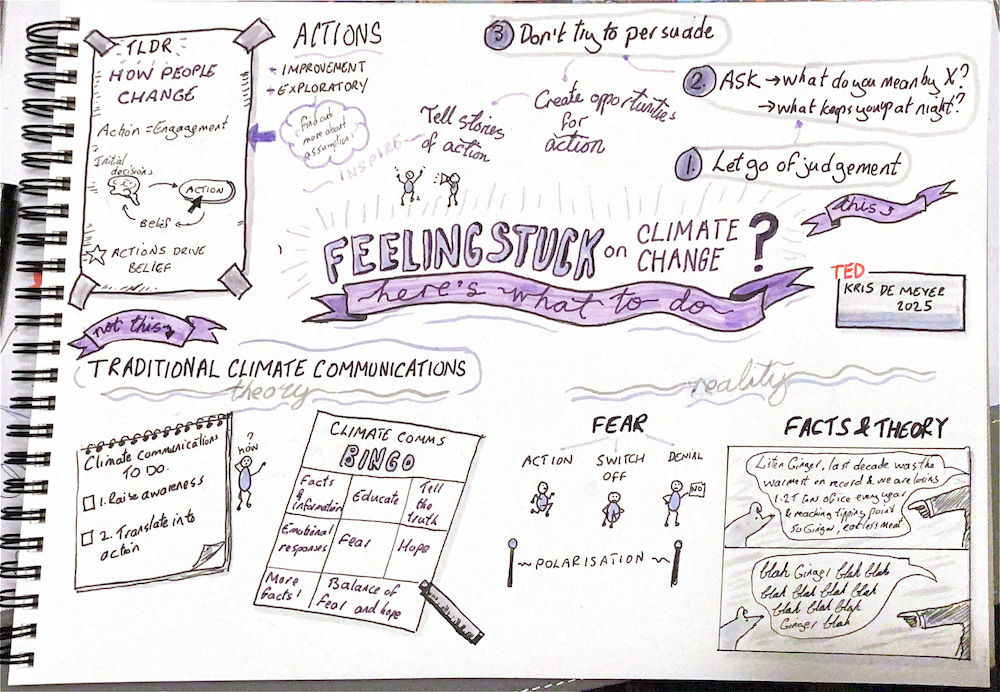 TLDR
HOW PEOPLE
CHANGE
Action = Engagement
Initial
decisions
ACTION
Belief
ACTIONS DRIVE
BELIEF
ACTIONS
IMPROVEMENT
EXPLORATORY
find out
more about
assumptions
INSPIRE
Tell stories
of action
Create opportunities
for
action
3. Don't try to persuade
2. ASK → what do you mean by X?
→ what keeps you up at night?
1. Let go of judgement
this
FEELING STUCK on CLIMATE
CHANGE ?
here's what to do
TED
KRIS DE MEYER
2025
not this
TRADITIONAL CLIMATE COMMUNICATIONS
theory
Climate communications
TO DO.
1. Raise awareness
2. Translate into
action
?
HOW
CLIMATE COMMS
BINGO
Facts
&
information
Educate
Tell
the
truth
Emotional
responses
Fear
Hope
More
facts!
Balance of
fear and hope
reality
FEAR
ACTION
SWITCH
OFF
DENIAL
NO
POLARISATION
FACTS & THEORY
Listen Ginger, last decade was the
warmest on record & we are losing
1.2T ton of ice every year
& reaching tipping point
So Ginger, eat less meat
blah Ginger blah blah
blah blah blah blah
blah blah blah
Ginger blah